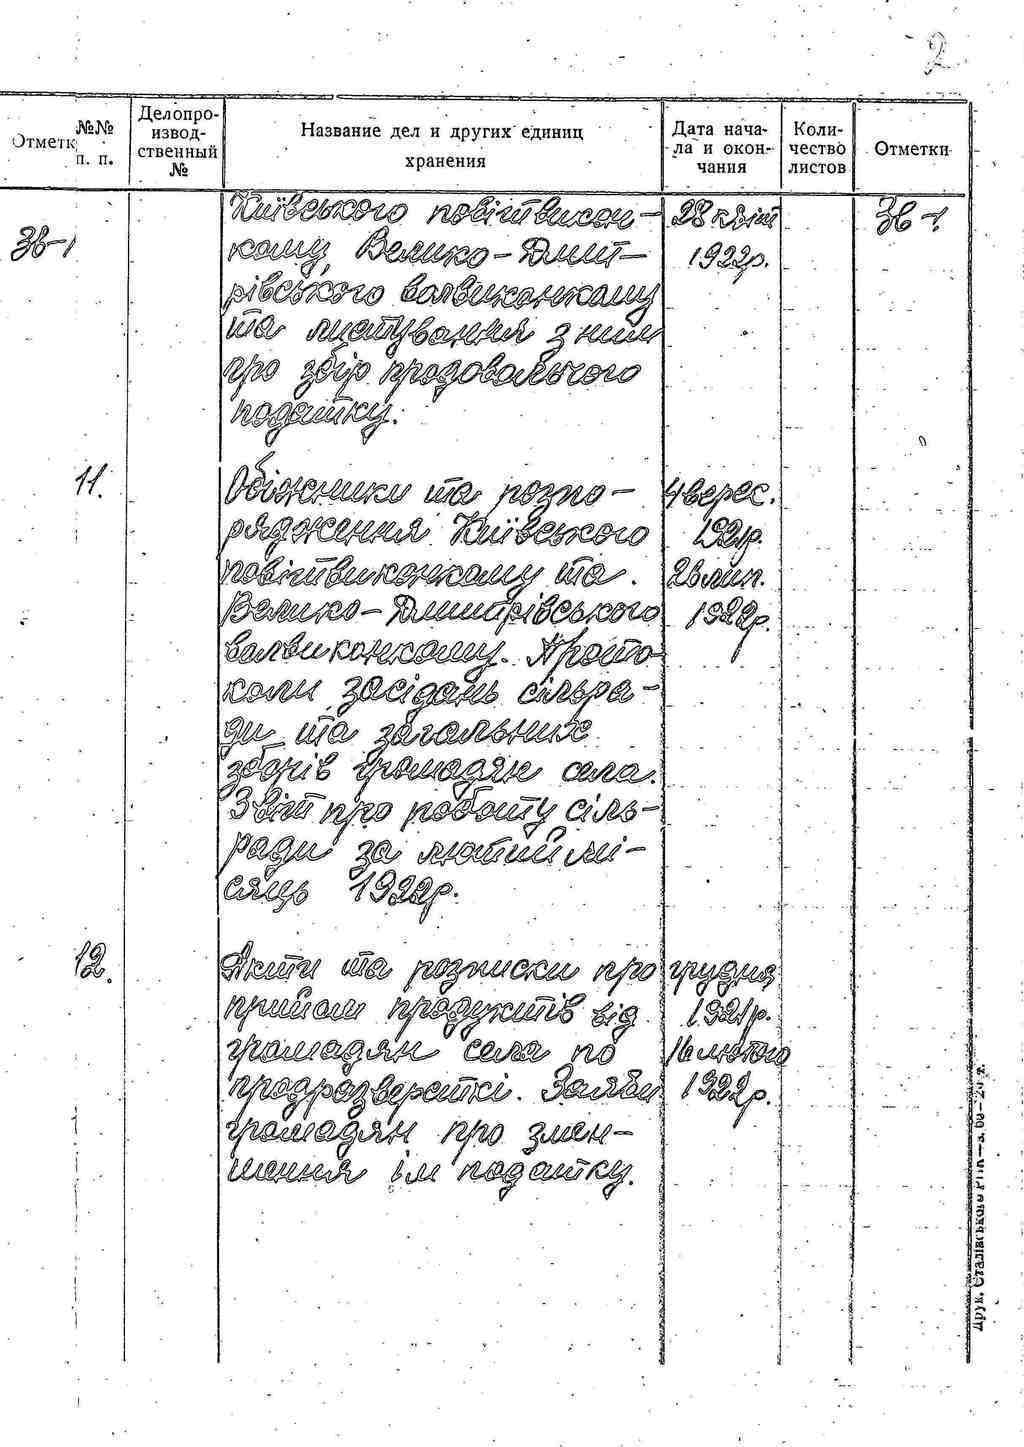 2
Отметк
№№
п. п.
Делопро-
извод-
ственный
№
Название дел и других единиц
хранения
Дата нача-
ла и окон-
чания
Коли-
чество
листов
Отметки
Київського повітвикон-
кому, Велико-Дмит-
рівського волвиконкому
та листування з ним
про збір продовольчого
податку.
28 квіт
1922р.
11.
Обіжники та розпо-
рядження Київського
повітвиконкому та
Велико-Дмитрівського
волвиконкому. Прото-
коли засідань сільра-
ди та загальних
зборів громадян села.
Звіт про роботу сіль-
ради за лютий мі-
сяць 1922р.
4 верес.
1921р.
26 лип.
1922р.
12.
Акти та розписки про
прийом продуктів від
громадян села по
продрозверсткі. Заяви
громадян про змен-
шення їм податку.
грудня
1921р.
16 лютого
1922р.
Друк. Сталінського